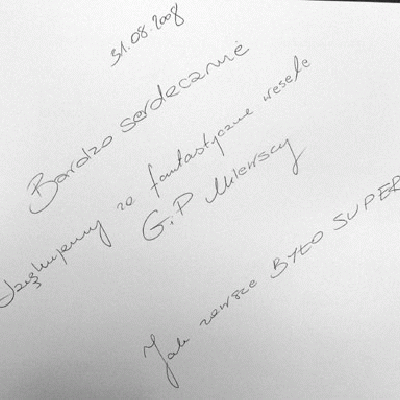 31.08.2008
Bardzo serdecznie
dziękujemy za fantastyczne wesele
G.P Mierscy
Jak zawsze BYŁO SUPER